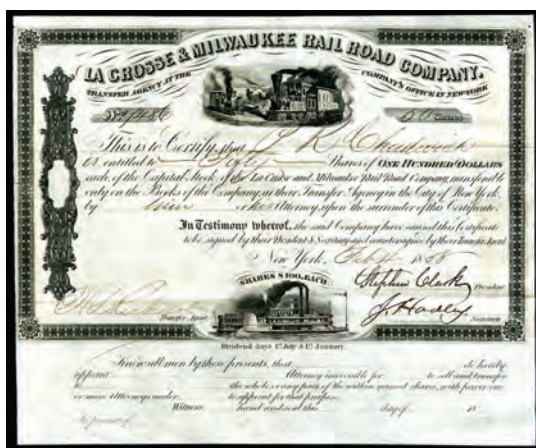 LA CROSSE & MILWAUKEE RAIL ROAD COMPANY.
TRANSFER AGENCY AT THE COMPANY'S OFFICE IN NEW YORK
This is to Certify that J R Chadwick
is entitled to Shares of ONE HUNDRED DOLLARS
each, of the Capital Stock of the La Crosse and Milwaukee Rail Road Company, transferable
only on the Books of the Company, at their Transfer Agency in the City of New York,
by or Attorney, upon the surrender of this Certificate.
In Testimony whereof, the said Company have caused this Certificate
to be signed by their President & Secretary and countersigned by their Transfer Agent
New York, Feb 4 1858
SHARES $100. EACH
Stephen Clark President
Transfer Agent
J. Hadley Secretary
Dividend days 1st July & 1st January.
Know all men by these presents, that do hereby
appoint Attorney irrevocable for to sell and transfer
to the whole or any part of the within named shares, with power one
or more Attorneys under to appoint for that purpose.
Witness hand and seal this day of 18
In presence of